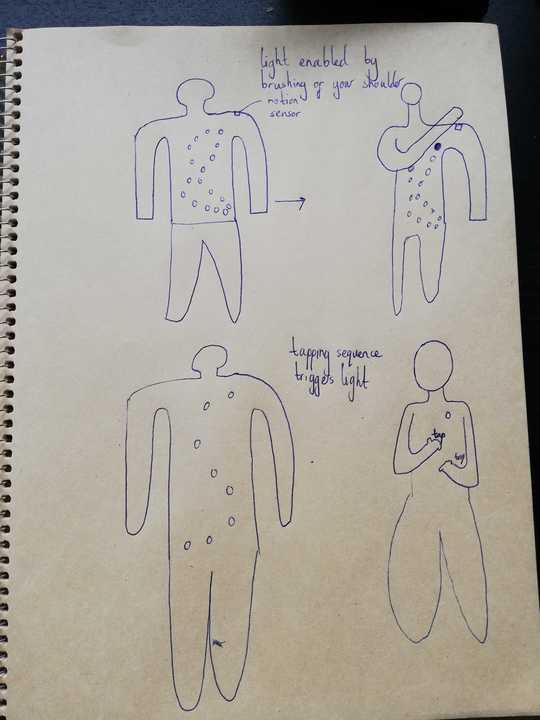 light enabled by
brushing of your shoulder
motion
sensor
tapping sequence
triggers light
tap
tap